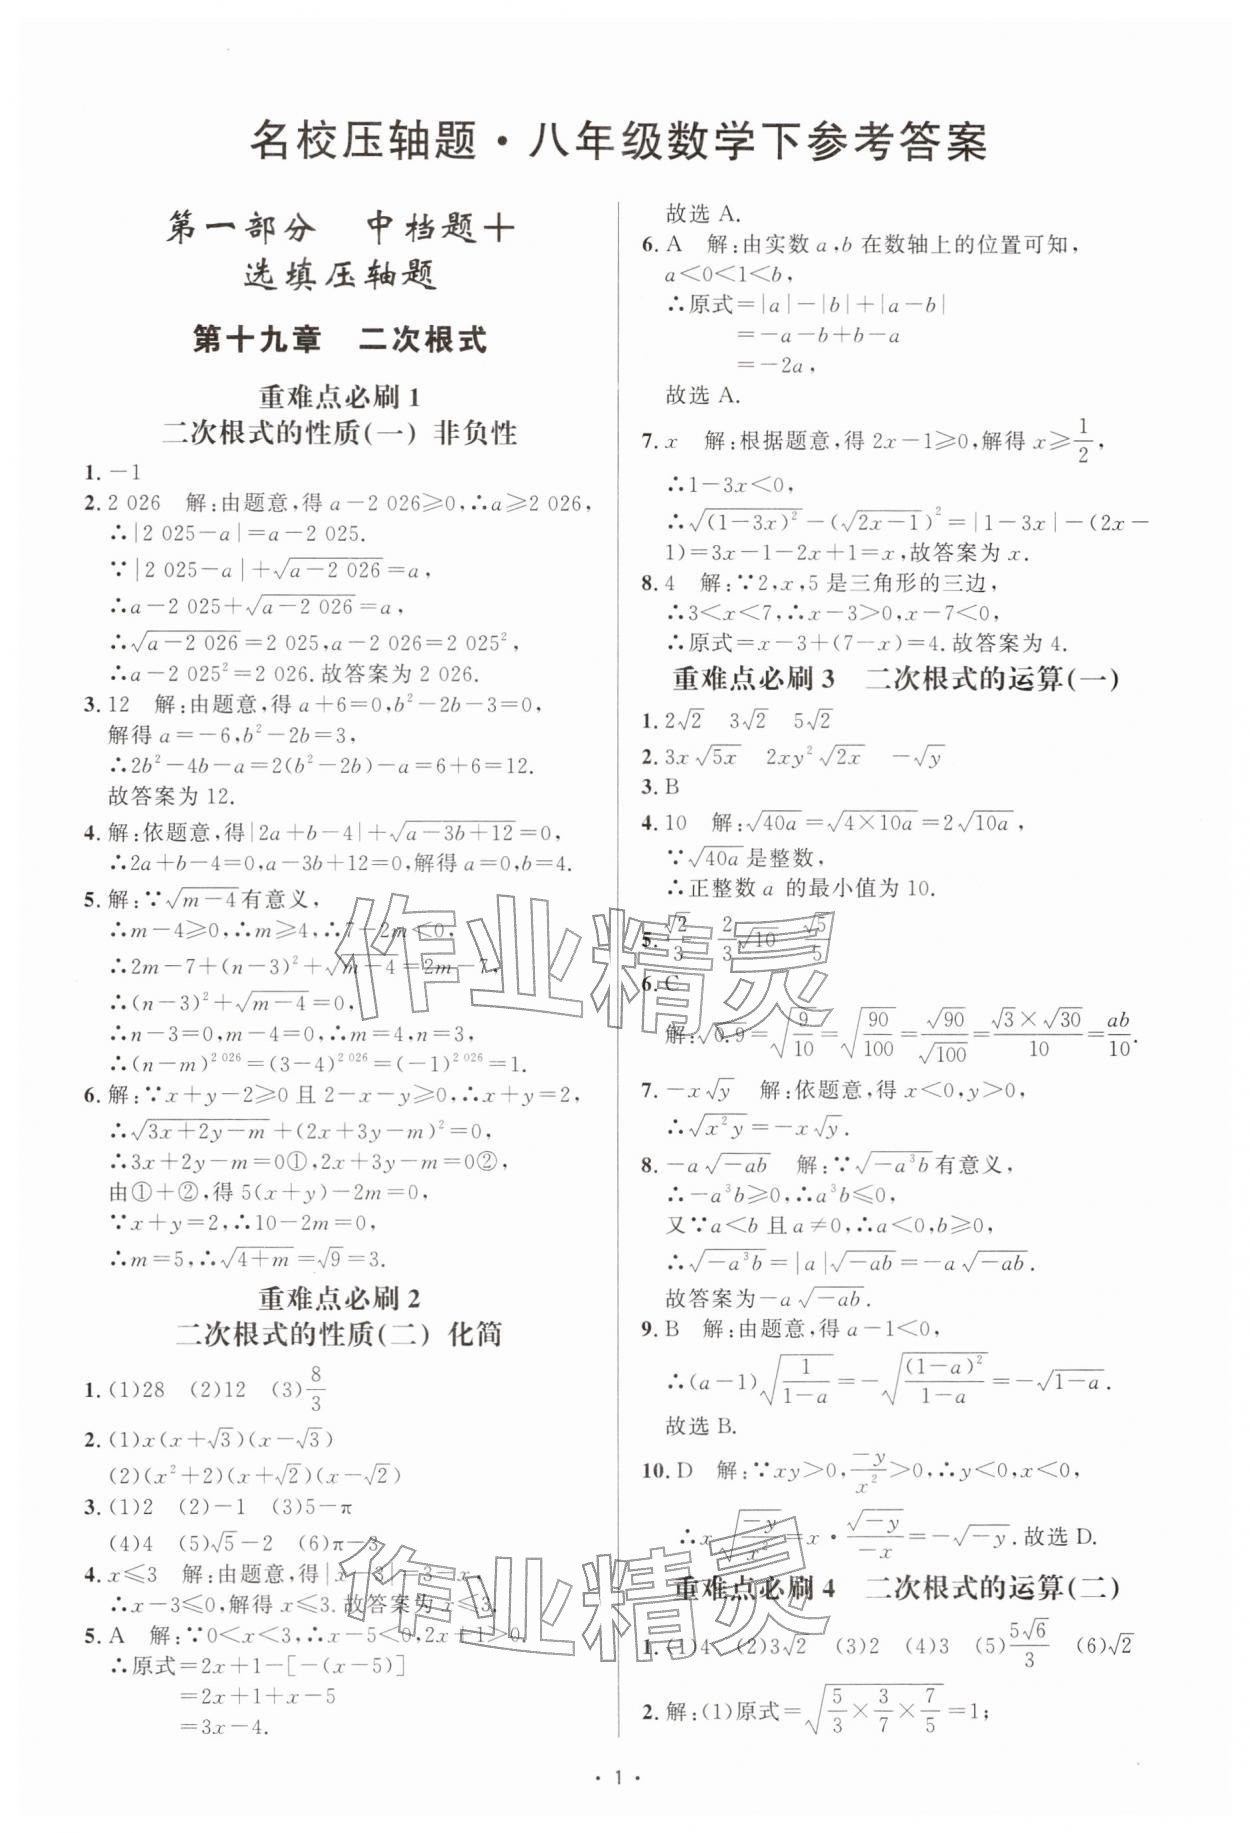 名校压轴题·八年级数学下参考答案
第一部分 中档题＋
选填压轴题
第十九章 二次根式
重难点必刷1
二次根式的性质(一) 非负性
1. －1
2. 2 026 解:由题意,得 a－2 026≥0,∴a≥2 026,
∴|2 025－a|＝a－2 025.
∵|2 025－a|＋√(a－2 026)＝a,
∴a－2 025＋√(a－2 026)＝a,
∴√(a－2 026)＝2 025,a－2 026＝2 025²,
∴a－2 025²＝2 026.故答案为 2 026.
3. 12 解:由题意,得 a＋6＝0,b²－2b－3＝0,
解得 a＝－6,b²－2b＝3,
∴2b²－4b－a＝2(b²－2b)－a＝6＋6＝12.
故答案为 12.
4. 解:依题意,得|2a＋b－4|＋√(a－3b＋12)＝0,
∴2a＋b－4＝0,a－3b＋12＝0,解得 a＝0,b＝4.
5. 解:∵√(m－4)有意义,
∴m－4≥0,∴m≥4,∴7－2m＜0,
∴2m－7＋(n－3)²＋√(m－4)＝2m－7,
∴(n－3)²＋√(m－4)＝0,
∴n－3＝0,m－4＝0,∴m＝4,n＝3,
∴(n－m)²⁰²⁶＝(3－4)²⁰²⁶＝(－1)²⁰²⁶＝1.
6. 解:∵x＋y－2≥0 且 2－x－y≥0,∴x＋y＝2,
∴√(3x＋2y－m)＋(2x＋3y－m)²＝0,
∴3x＋2y－m＝0①,2x＋3y－m＝0②,
由①＋②,得 5(x＋y)－2m＝0,
∵x＋y＝2,∴10－2m＝0,
∴m＝5,∴√(4＋m)＝√9＝3.
重难点必刷2
二次根式的性质(二) 化简
1. (1)28 (2)12 (3)8/3
2. (1)x(x＋√3)(x－√3)
(2)(x²＋2)(x＋√2)(x－√2)
3. (1)2 (2)－1 (3)5－π
(4)4 (5)√5－2 (6)π－3
4. x≤3 解:由题意,得|x－3|＝3－x,
∴x－3≤0,解得 x≤3.故答案为 x≤3.
5. A 解:∵0＜x＜3,∴x－5＜0,2x＋1＞0.
∴原式＝2x＋1－[－(x－5)]
＝2x＋1＋x－5
＝3x－4.
故选 A.
6. A 解:由实数 a,b 在数轴上的位置可知,
a＜0＜1＜b,
∴原式＝|a|－|b|＋|a－b|
＝－a－b＋b－a
＝－2a,
故选 A.
7. x 解:根据题意,得 2x－1≥0,解得 x≥1/2,
∴1－3x＜0,
∴√((1－3x)²)－(√(2x－1))²＝|1－3x|－(2x－
1)＝3x－1－2x＋1＝x,故答案为 x.
8. 4 解:∵2,x,5 是三角形的三边,
∴3＜x＜7,∴x－3＞0,x－7＜0,
∴原式＝x－3＋(7－x)＝4.故答案为 4.
重难点必刷3 二次根式的运算(一)
1. 2√2 3√2 5√2
2. 3x√(5x) 2xy²√(2x) －√y
3. B
4. 10 解:√(40a)＝√(4×10a)＝2√(10a),
∵√(40a)是整数,
∴正整数 a 的最小值为 10.
5. √2/3 2/3√10 √5/5
6. C
解:√0.9＝√(9/10)＝√(90/100)＝√90/√100＝(√3×√30)/10＝ab/10.
7. －x√y 解:依题意,得 x＜0,y＞0,
∴√(x²y)＝－x√y.
8. －a√(－ab) 解:∵√(－a³b)有意义,
∴－a³b≥0,∴a³b≤0,
又∵a＜b 且 a≠0,∴a＜0,b≥0,
∴√(－a³b)＝|a|√(－ab)＝－a√(－ab).
故答案为－a√(－ab).
9. B 解:由题意,得 a－1＜0,
∴(a－1)√(1/(1－a))＝－√((1－a)²/(1－a))＝－√(1－a).
故选 B.
10. D 解:∵xy＞0,－y/x²＞0,∴y＜0,x＜0,
∴x√(－y/x²)＝x·√(－y)/(－x)＝－√(－y).故选 D.
重难点必刷4 二次根式的运算(二)
1. (1)4 (2)3√2 (3)2 (4)3 (5)5√6/3 (6)√2
2. 解:(1)原式＝√(5/3×3/7×7/5)＝1;
· 1 ·
作业精灵
作业精灵